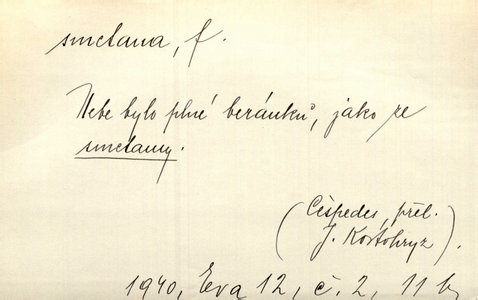 smetana, f.
Nebe bylo plné beránků, jako ze
smetany.
(Céspedes, přel.
J. Kostohryz).
1940, Eva 12, č. 2, 11 b